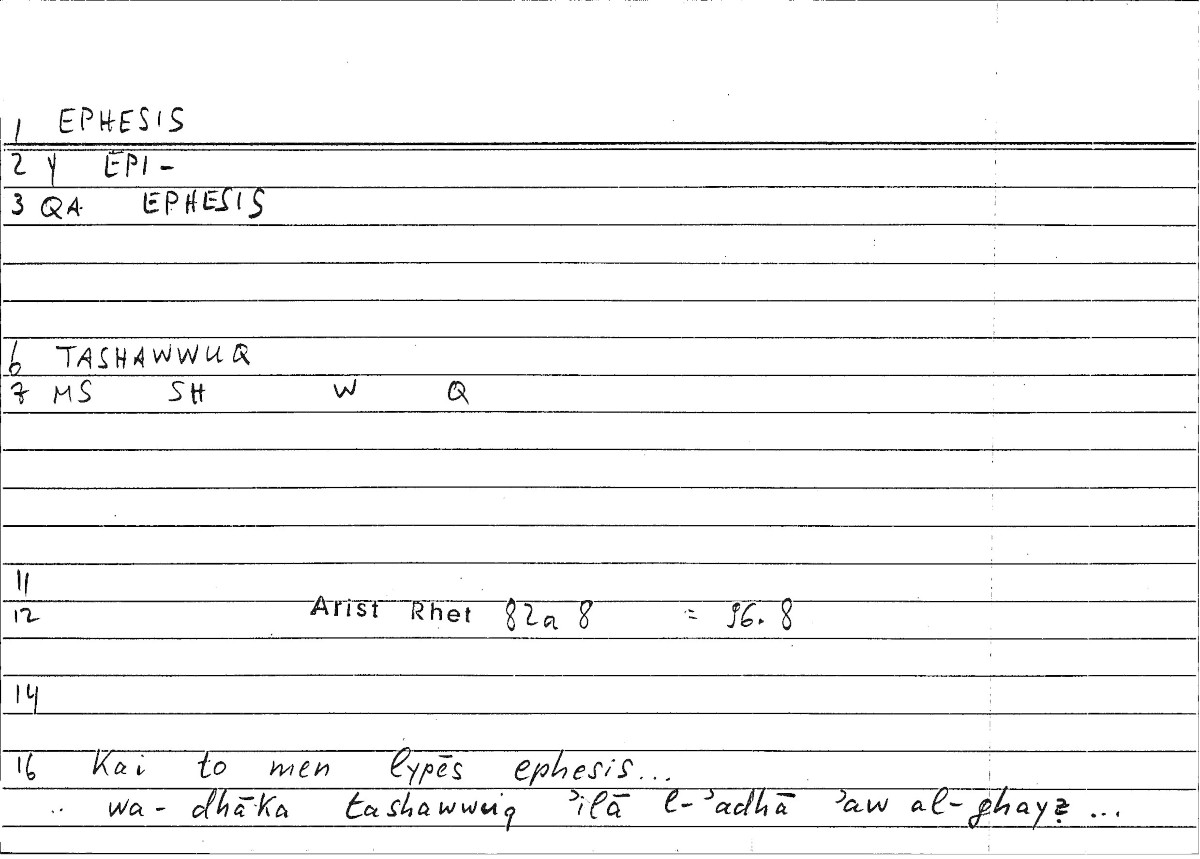 1 EPHESIS
2 Y EPI-
3 QA EPHESIS
6 TASHAWWUQ
7 MS SH W Q
11
12 Arist Rhet 82a 8 = 96.8
14
16 Kai to men lypēs ephesis...
wa-dhāka tashawwuq ʾilā l-ʾadhā ʾaw al-ghayẓ ...